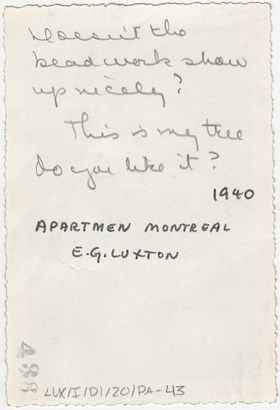 Doesn't the
beadwork show
up nicely?
This is my tree
do you like it?
1940
APARTMEN MONTREAL
E.G. LUXTON
488
LUX/I/D1/20/PA-43